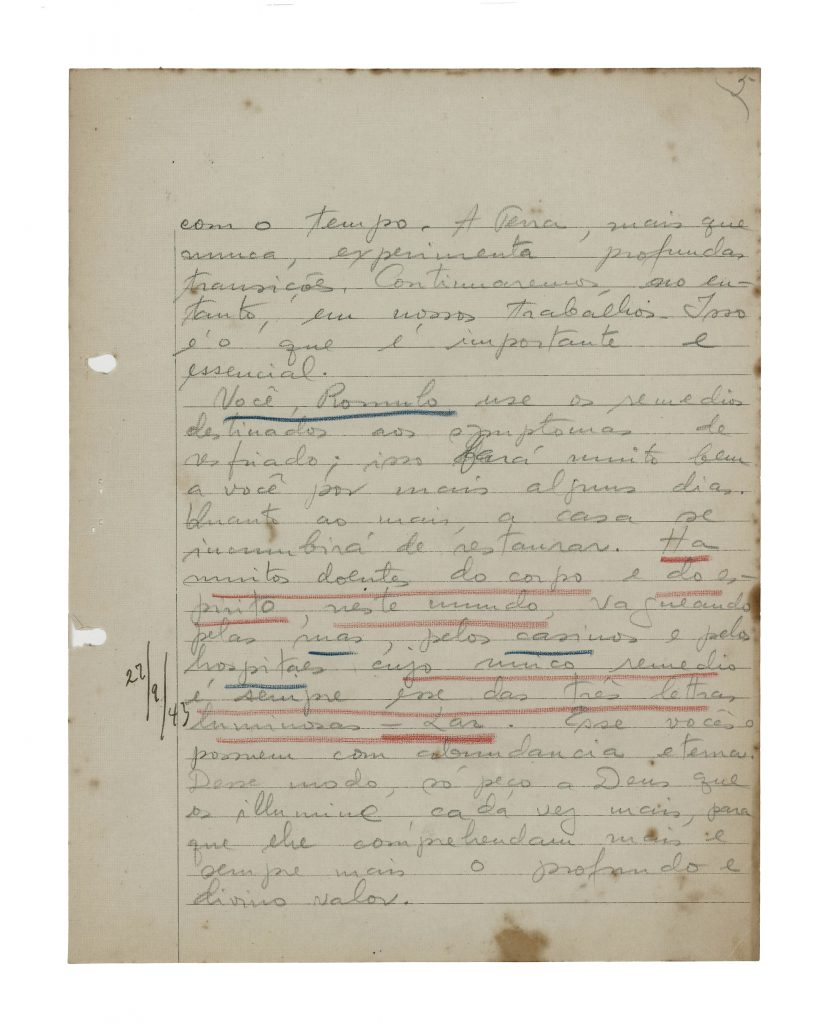 5
com o tempo. A Terra, mais que
nunca, experimenta profundas
transições. Continuaremos, no en-
tanto, em nossos trabalhos. Isso
é o que é importante e
essencial.
Você, Romulo use os remedios
destinados aos symptomas de
resfriado; isso fará muito bem
a você por mais alguns dias.
Quanto ao mais, a casa se
incumbirá de restaurar. Ha
muitos doentes do corpo e do es-
pirito, neste mundo, vagueando
pelas ruas, pelos casinos e pelos
hospitaes cujo unico remedio
é sempre esse das três lettras
luminosas – Lar. Esse vocês o
possuem com abundancia eterna.
Desse modo, só peço a Deus que
os illumine, cada vez mais, para
que lhe comprehendam mais e
sempre mais o profundo e
divino valor.
22/9/43